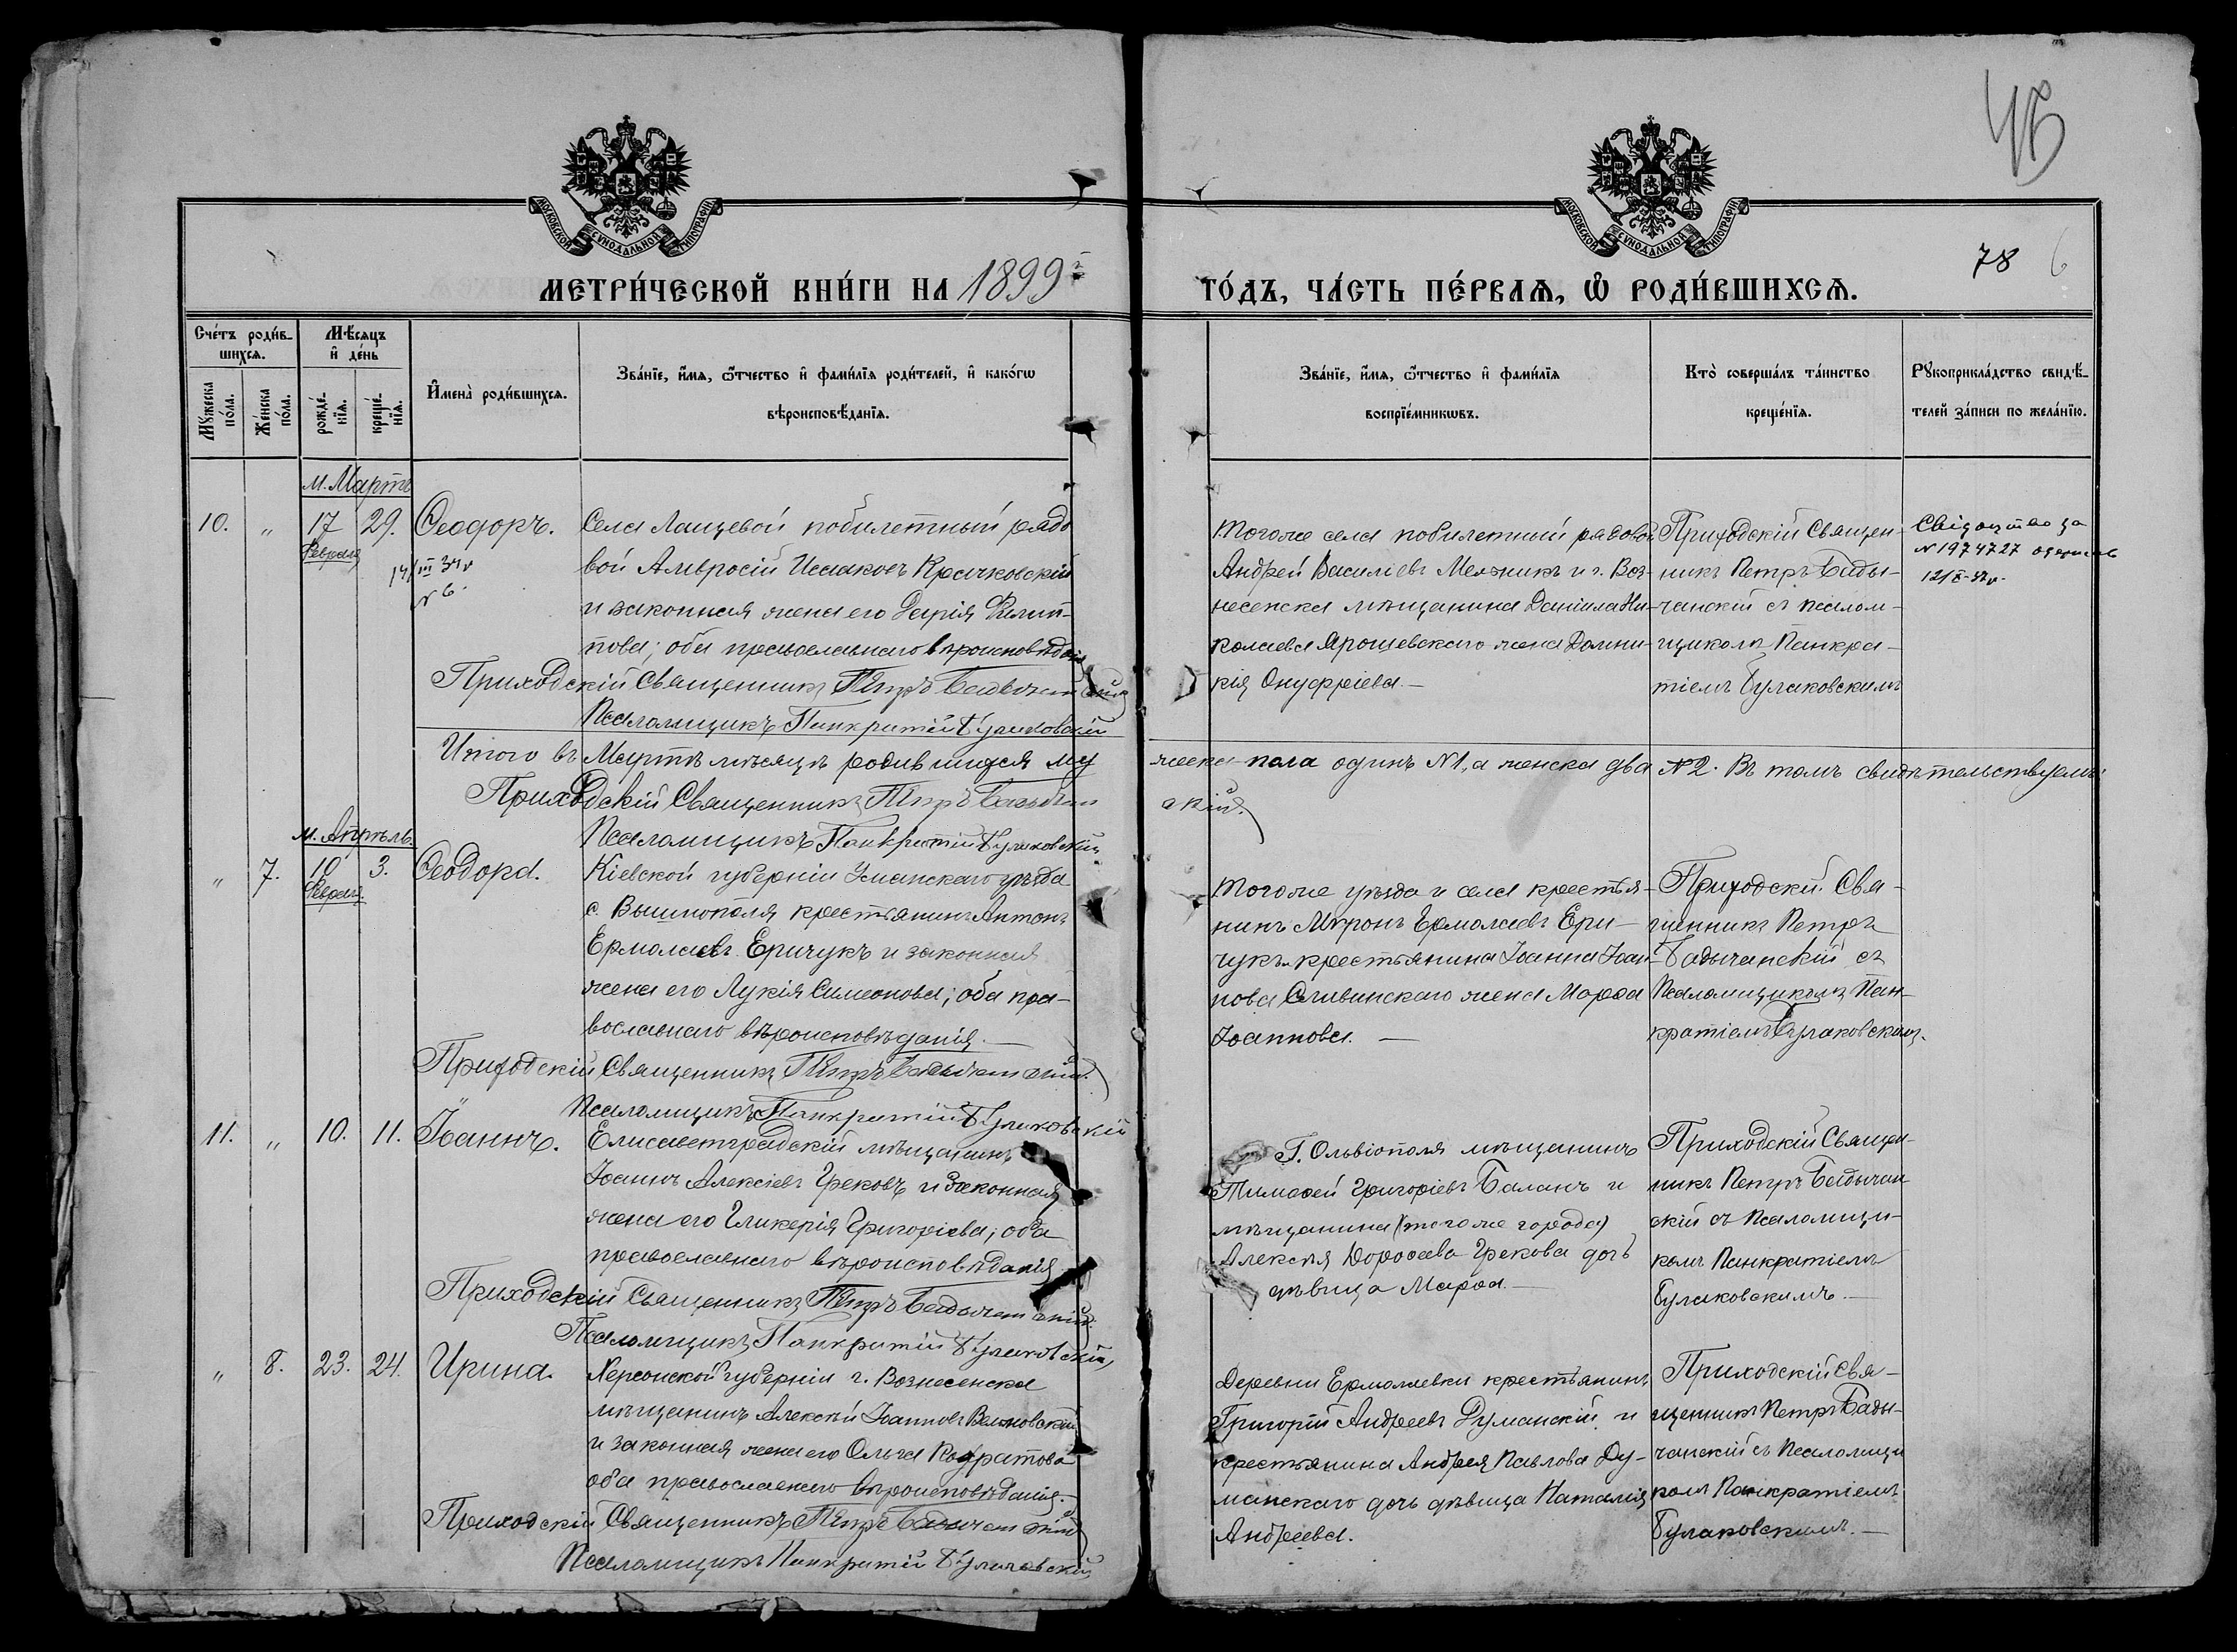 45
МОСКОВСКОЙ СУНОДАЛЬНОЙ ТИПОГРАФІИ
МОСКОВСКОЙ СУНОДАЛЬНОЙ ТИПОГРАФІИ
78 6
МЕТРИ́ЧЕСКОЙ КНИ́ГИ НА 1899й
ГО́ДЪ, ЧА́СТЬ ПЕ́РВАѦ, Ѡ҆ РОДИ́ВШИХСѦ.
Сче́тъ роди́в-
шихсѧ.
Мꙋ́жеска по́ла.
Же́нска по́ла.
Мѣ́сѧцъ
и҆ де́нь
рожде́-
нїѧ.
креще́-
нїѧ.
И҆мена̀ роди́вшихсѧ.
Зва́нїе, и҆́мѧ, ѻ҆́тчество и҆ фами́лїѧ роди́телей, и҆ како́гѡ
вѣроисповѣ́данїѧ.
Зва́нїе, и҆́мѧ, ѻ҆́тчество и҆ фами́лїѧ
воспрїе́мникѡвъ.
Кто̀ соверша́лъ та́инство
креще́нїѧ.
Рꙋкоприкла́дство свидѣ́-
телей за́писи по жела́нїю.
м. Мартъ
10. " 17 29. Ѳеодоръ.
Февраля
14/III 34 г
N 6.
Села Лащевой побилетный рядо
вой Амвросій Исааковъ Крачковскій
и законная жена его Дарія Филип-
пова; оба православнаго вѣроисповѣданія
Приходскій Священникъ Петръ Бадычанскій
Псаломщикъ Панкратій Булаковскій
Тогоже села побилетный рядовой
Андрей Василіевъ Мельникъ и г. Воз-
несенска мѣщанина Даніила Ни-
колаева Ярошевскаго жена Домни-
кія Онуфріева. —
Приходскій Священ-
никъ Петръ Бады-
чанскій съ псалом-
щикомъ Панкра-
тіемъ Булаковскимъ
Свідоцтво за
N 1974727
Итого въ Мартѣ мѣсяцѣ родившихся му
жеска пола одинъ N1, а женска два N2. Въ томъ свидѣтельствуемъ:
Приходскій Священникъ Петръ Бадычан
скій.
Псаломщикъ Панкратій Булаковскій
м. Апрѣль.
" 7. 10 3. Ѳеодора.
Февраля.
Кіевской губерніи Уманскаго уѣзда
с. Вышнополя крестьянинъ Антонъ
Ермолаевъ Еричукъ и законная
жена его Лукія Симеонова; оба пра-
вославнаго вѣроисповѣданія. —
Приходскій Священникъ Петръ Бадычанскій.
Псаломщикъ Панкратій Булаковскій
Тогоже уѣзда и села крестья-
нинъ Миронъ Ермолаевъ Ери-
чукъ и крестьянина Іоанна Іоан-
нова Сливинскаго жена Марѳа
Іоаннова. —
Приходскій Свя-
щенникъ Петръ
Бадычанскій съ
Псаломщикомъ Пан-
кратіемъ Булаковскимъ.
11. " 10. 11. Іоаннъ.
Елисаветградскій мѣщанинъ
Іоаннъ Алексіевъ Грековъ и законная
жена его Гликерія Григоріева; оба
православнаго вѣроисповѣданія
Приходскій Священникъ Петръ Бадычанскій.
Псаломщикъ Панкратій Булаковскій,
Г. Ольвіополя мѣщанинъ
Тимоѳей Григоріевъ Баланъ и
мѣщанина (тогоже города)
Алексѣя Дороѳеева Грекова дочь
дѣвица Марѳа —
Приходскій Священ-
никъ Петръ Бадычан
скій съ Псаломщи-
комъ Панкратіемъ
Булаковскимъ. —
" 8. 23. 24. Ирина.
Херсонской губерніи г. Вознесенска
мѣщанинъ Алексѣй Іоанновъ
и законная жена его Ольга Кодратова
оба православнаго вѣроисповѣданія.
Приходскій Священникъ Петръ Бадычанскій
Псаломщикъ Панкратій Булаковскій
Деревни Ермолаевки крестьянинъ
Григорій Андреевъ Думанскій и
крестьянина Андрея Павлова Ду-
манскаго дочь дѣвица Наталія
Андреева.
Приходскій Свя-
щенникъ Петръ Бады-
чанскій съ Псаломщи
комъ Панкратіемъ
Булаковскимъ. —